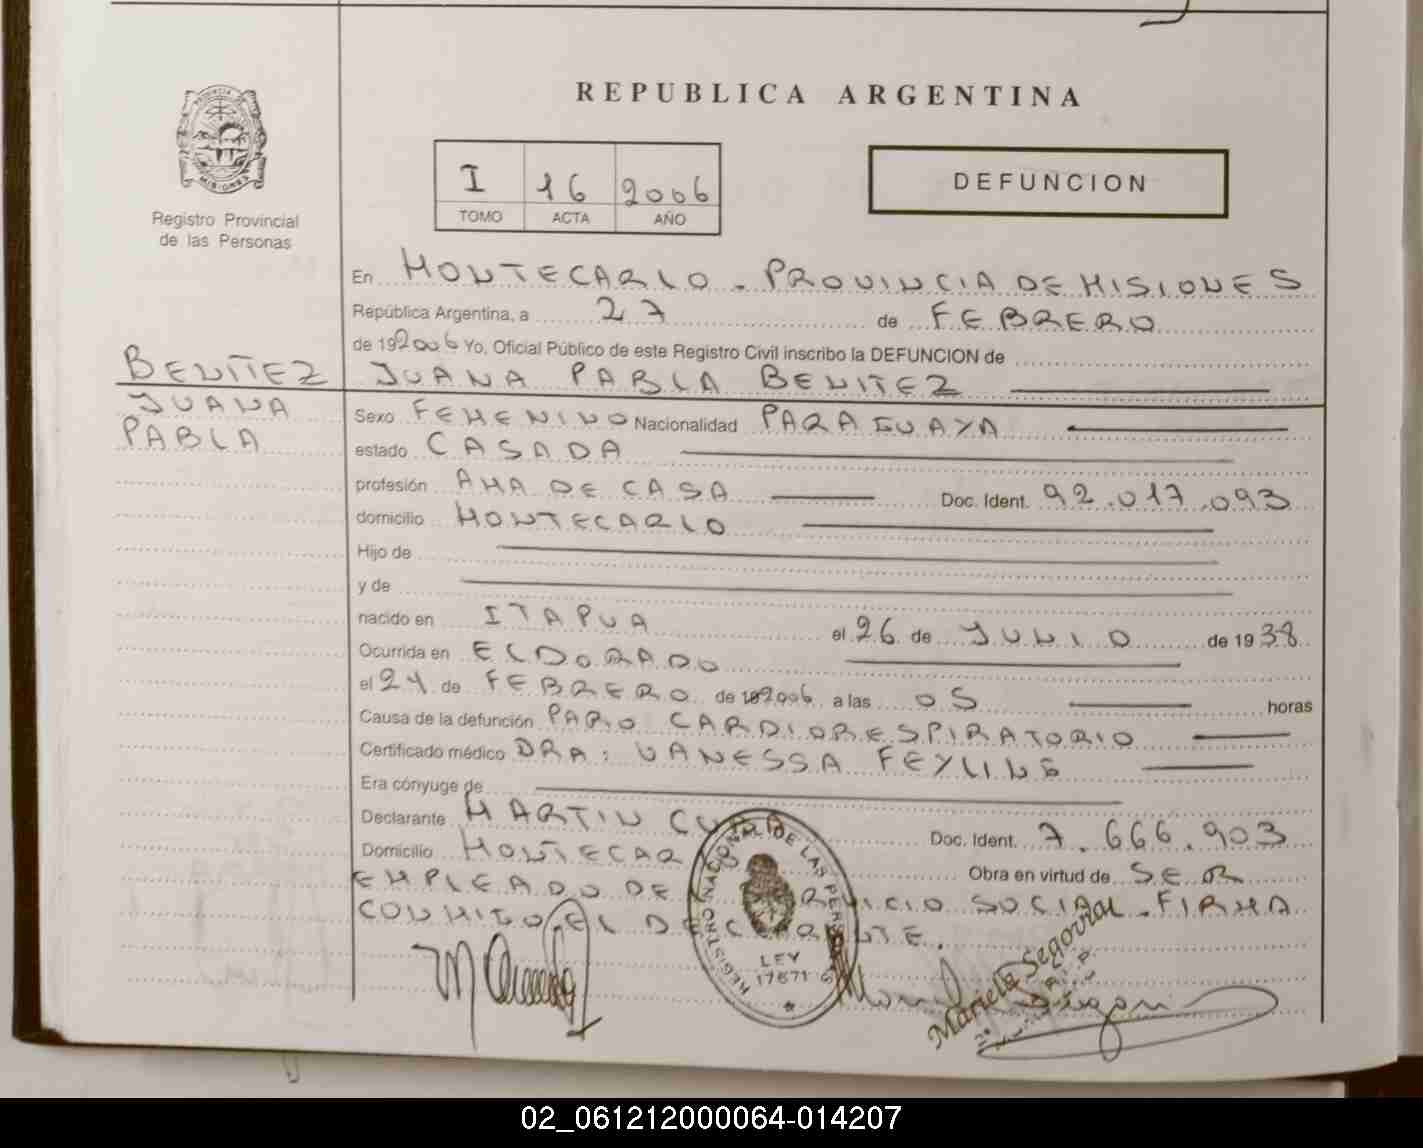 REPUBLICA ARGENTINA
PROVINCIA
MISIONES
Registro Provincial
de las Personas
I 16 2006
TOMO ACTA AÑO
DEFUNCION
En MONTECARLO. PROVINCIA DE MISIONES
República Argentina, a 27 de FEBRERO
de 192006 Yo, Oficial Público de este Registro Civil inscribo la DEFUNCION de
BENITEZ JUANA PABLA BENITEZ
JUANA
PABLA
Sexo FEMENINO Nacionalidad PARAGUAYA
estado CASADA
profesión AMA DE CASA Doc. Ident. 92.017.093
domicilio MONTECARLO
Hijo de
y de
nacido en ITAPUA el 26 de JUNIO de 1938
Ocurrida en ELDORADO
el 24 de FEBRERO de 2006 a las 05 horas
Causa de la defunción PARO CARDIORESPIRATORIO
Certificado médico DRA: VANESSA FEYLING
Era cónyuge de
Declarante MARTIN Doc. Ident. 7.666.903
Domicilio MONTECAR Obra en virtud de SER
EMPLEADO DE SOCIAL. FIRMA
CONMIGO EL DECLARANTE.
REGISTRO NACIONAL DE LAS PERS
LEY
17671
Mariela Segovia
02_061212000064-014207